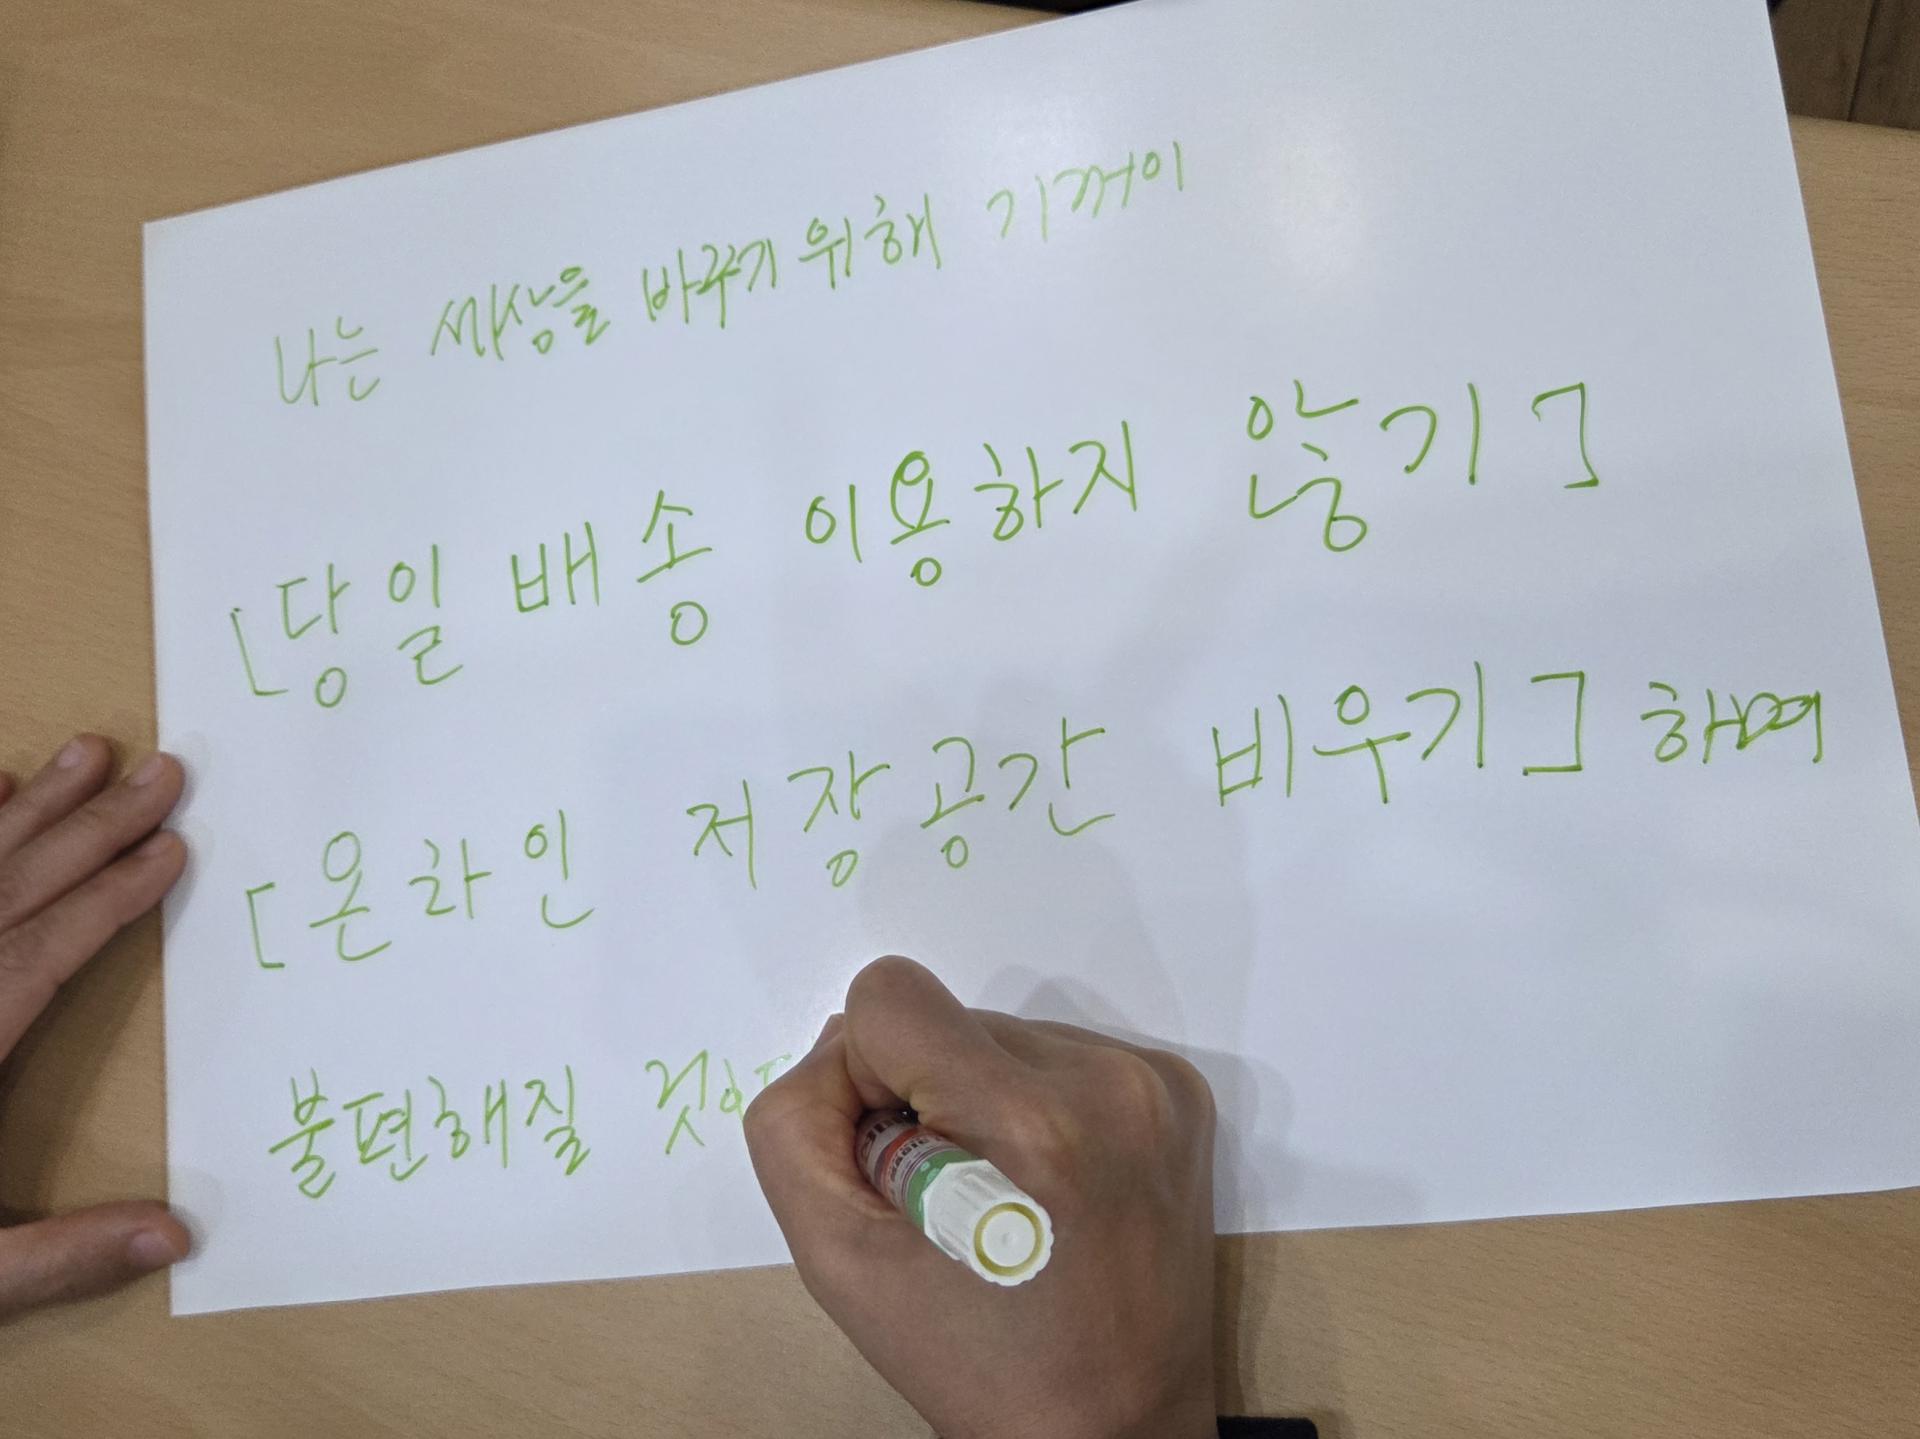 나는 세상을 바꾸기 위해 기꺼이
[당일 배송 이용하지 않기]
[온라인 저장공간 비우기] 하며
불편해질 것이